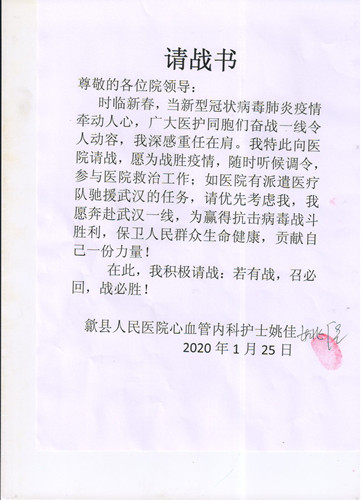 请战书
尊敬的各位院领导：
时临新春，当新型冠状病毒肺炎疫情
牵动人心，广大医护同胞们奋战一线令
人动容，我深感重任在肩。我特此向医
院请战，愿为战胜疫情，随时听候调令，
参与医院救治工作；如医院有派遣医疗
队驰援武汉的任务，请优先考虑我，我
愿奔赴武汉一线，为赢得抗击病毒战斗
胜利，保卫人民群众生命健康，贡献自
己一份力量！
在此，我积极请战：若有战，召必
回，战必胜！
歙县人民医院心血管内科护士姚佳
2020 年 1 月 25 日